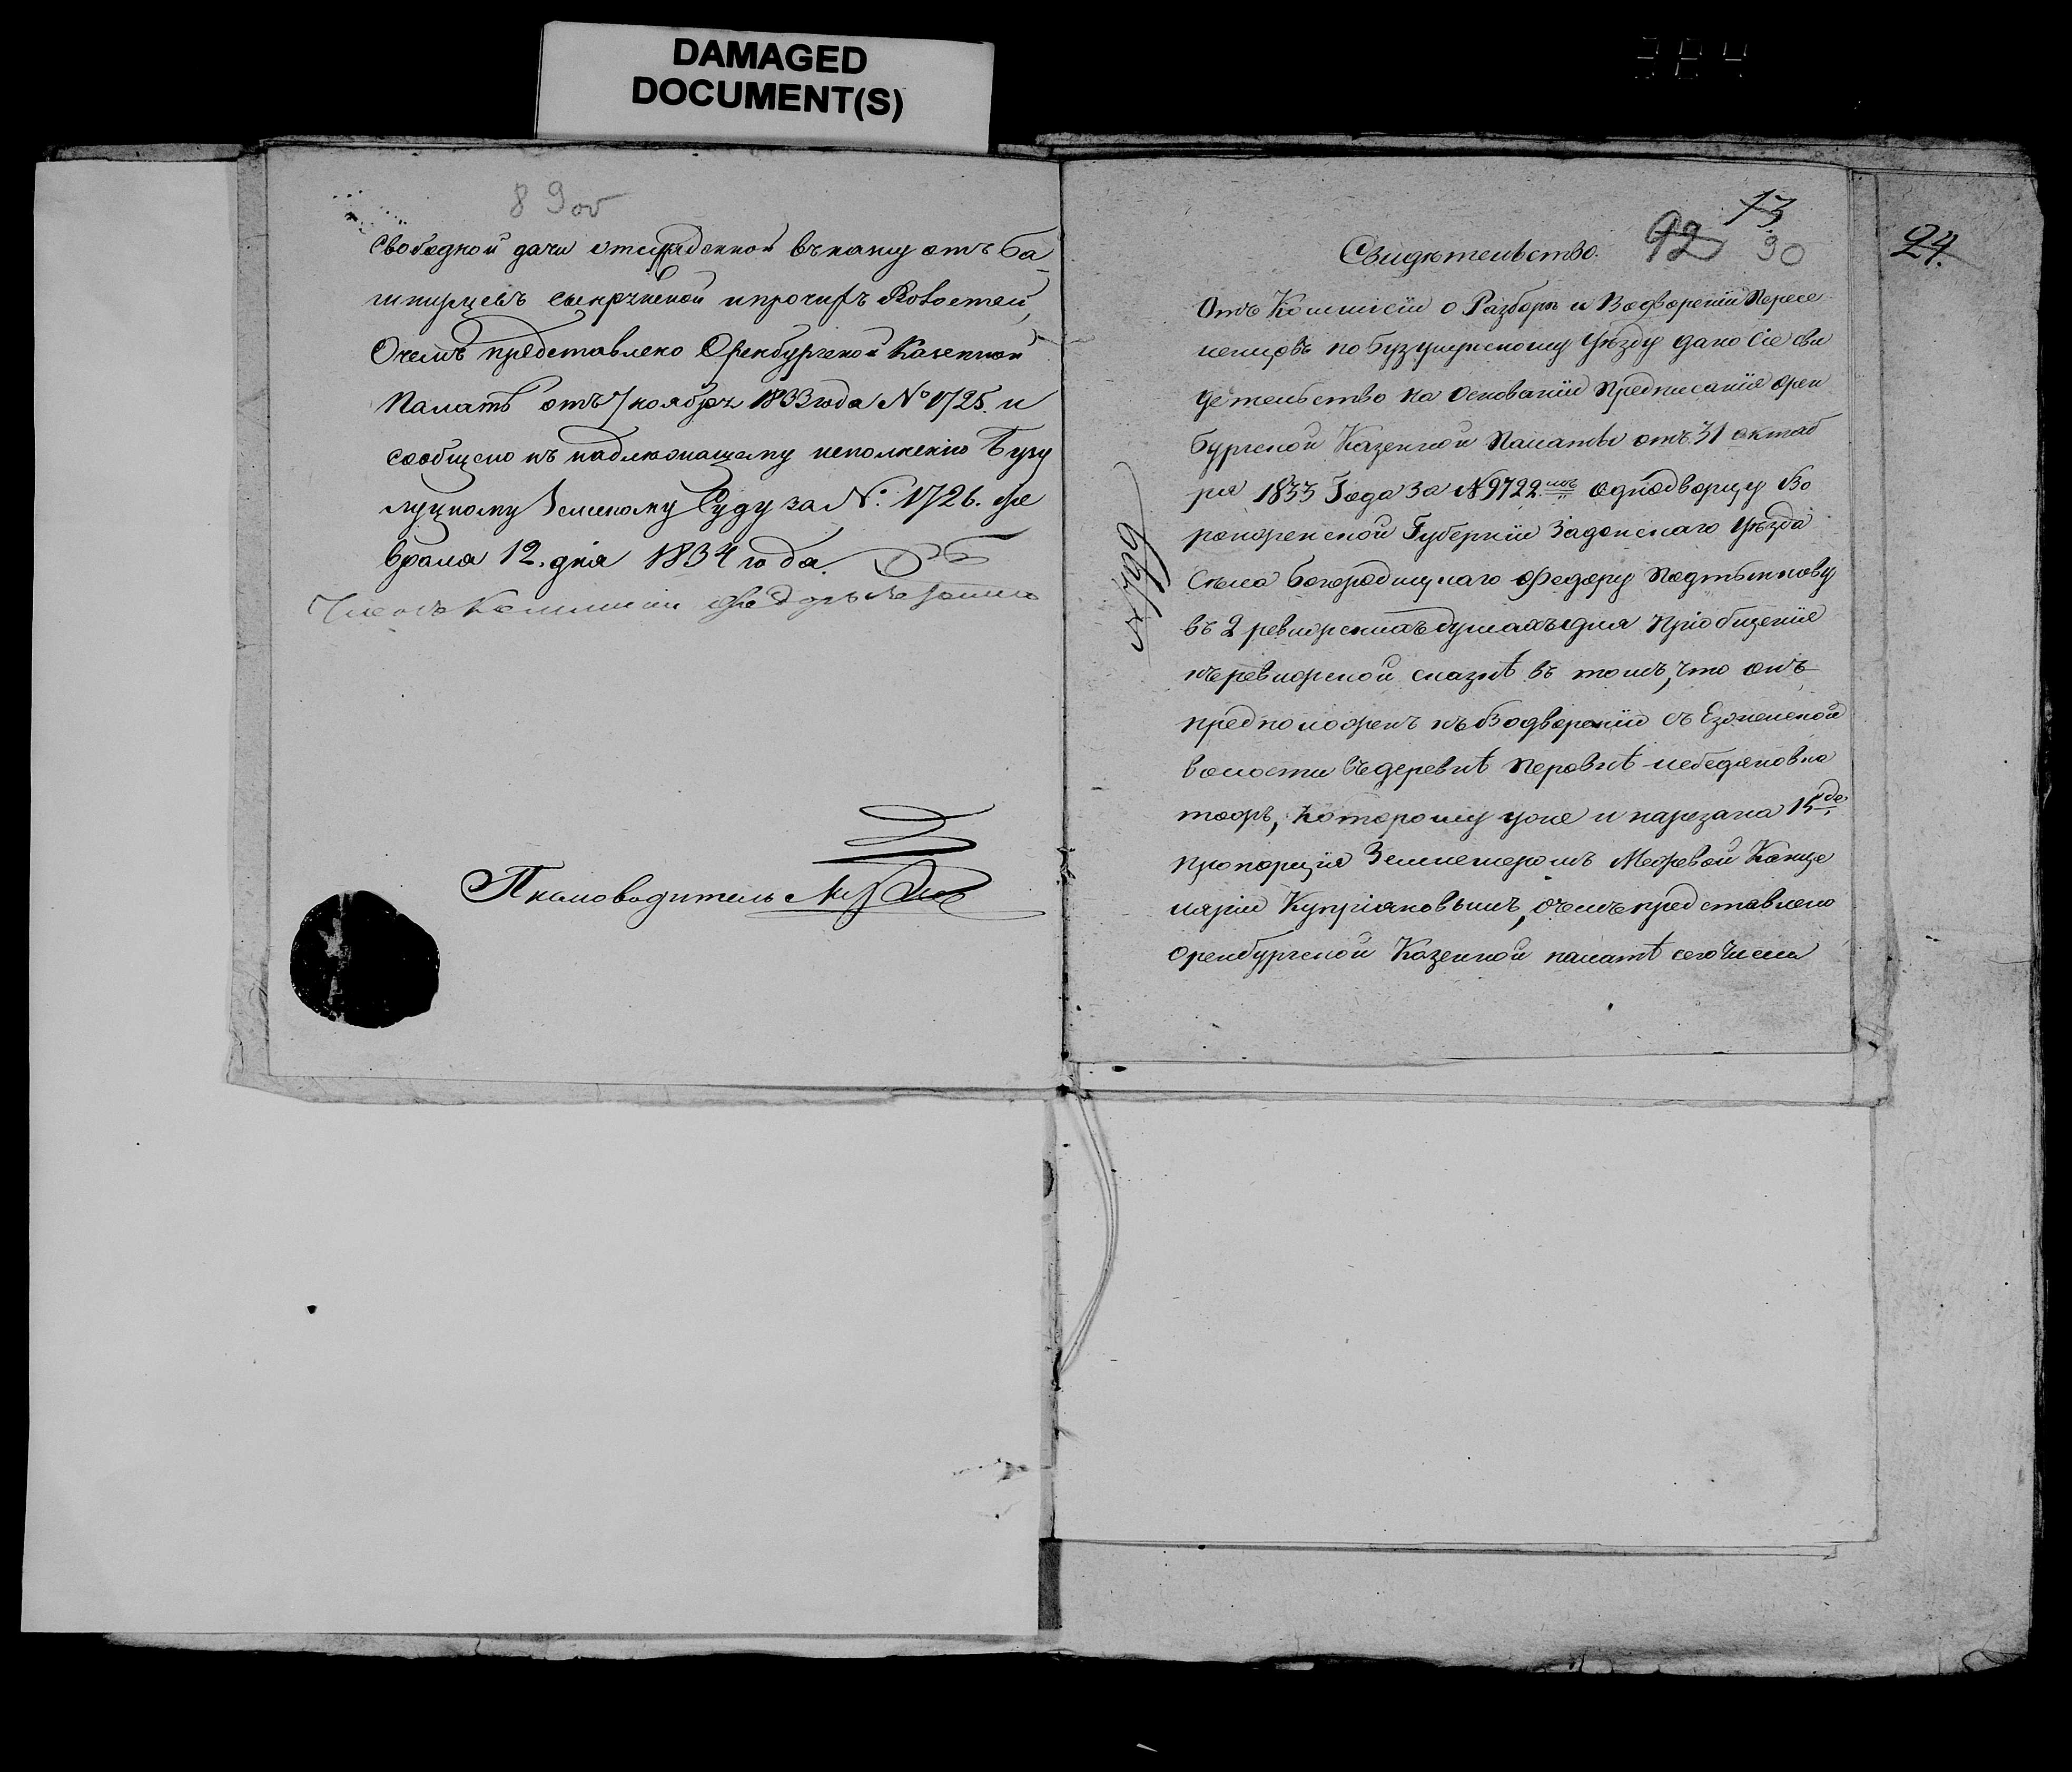 DAMAGED
DOCUMENT(S)
89об
свободной дачи отмежеванной въ казну отъ Ба
шкирцевъ и прочихъ Волостей,
О чемъ представлено Оренбургской Казенной
Палатѣ отъ 7 ноября 1833 года № 1725. и
сообщено къ надлежащему исполненію Бузу
лукскому Земскому Суду за №: 1726. Фе
враля 12. дня 1834 года.
Членъ Коммисіи Федоръ
Письмоводитель
13
92 90
24.
Свидѣтельство.
Отъ Комиисіи о Разборѣ и Водвореніи Пересе
ленцовъ по Бузулукскому Уѣзду дано Сіе сви
детельство на основаніи Предписанія Орен
бургской Казенной Палаты отъ 31 октяб
ря 1833 Года За № 9722мъ однодворцу Во
ронежской Губерніи Задонскаго Уѣзда
Села Богородицкаго Федору
въ 2 ревизскихъ душахъ для Пріобщенія
къ ревизской сказкѣ въ томъ, что онъ
предположенъ къ Водворенію въ
волости въ деревнѣ
тожъ, Которому уже и нарезана 15 де.
пропорція Землемеромъ Межевой Канце
ляріи Купріяновымъ, о чемъ представлено
Оренбургской Казенной палатѣ сего Числа